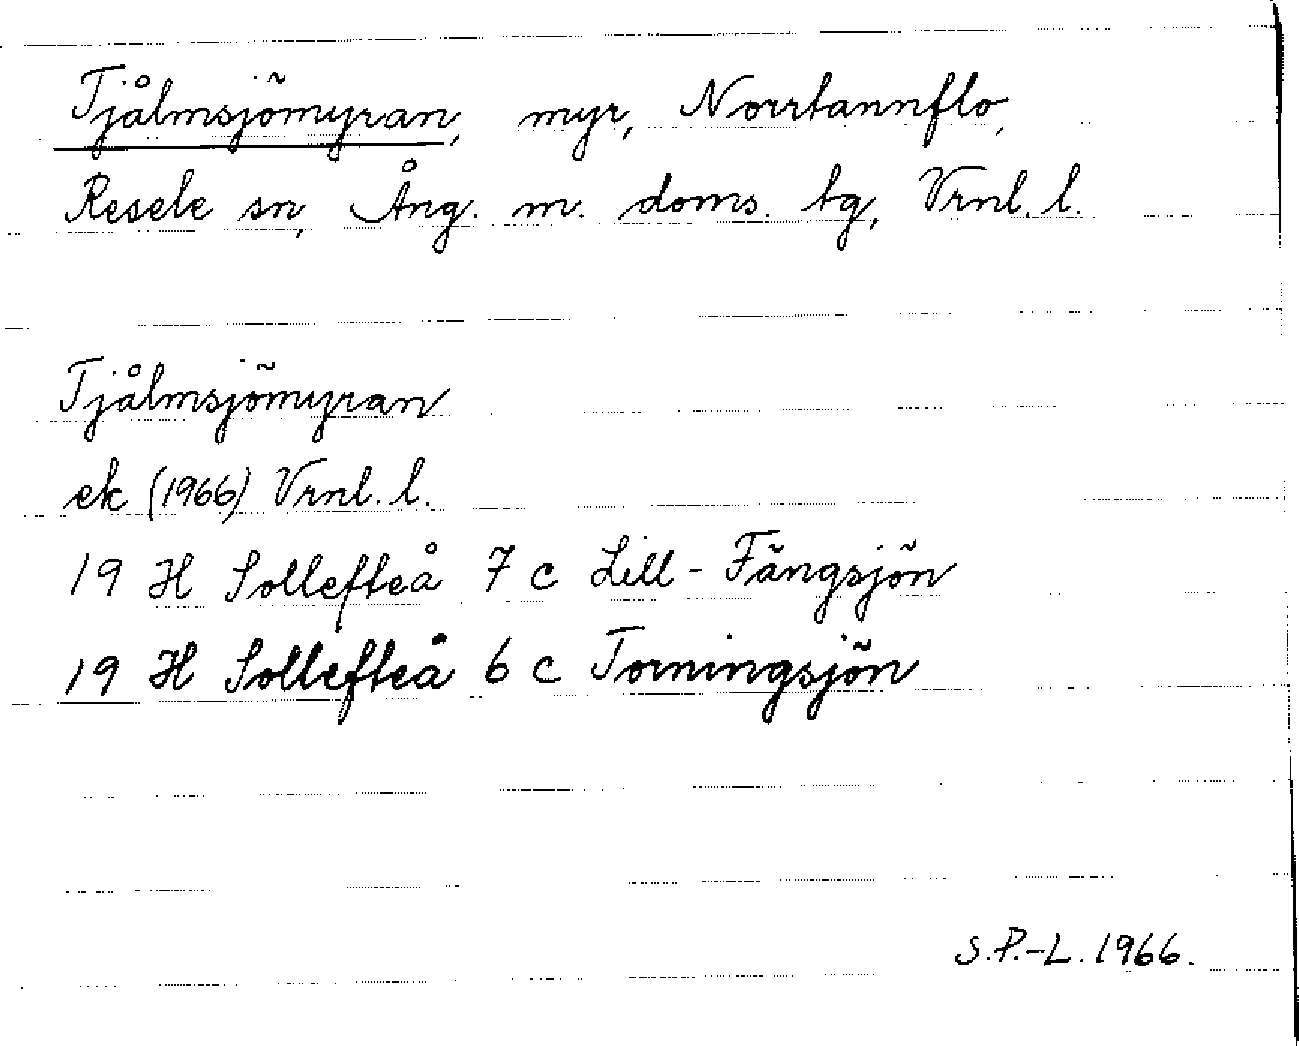 Tjålmsjömyran, myr, Norrtannflo,
Resele sn, Ång. m. doms. tg, Vrnl. l.
Tjålmsjömyran
ek (1966) Vrnl. l.
19 H Sollefteå 7 c Lill-Fängsjön
19 H Sollefteå 6 c Torningsjön
S.P.-L. 1966.